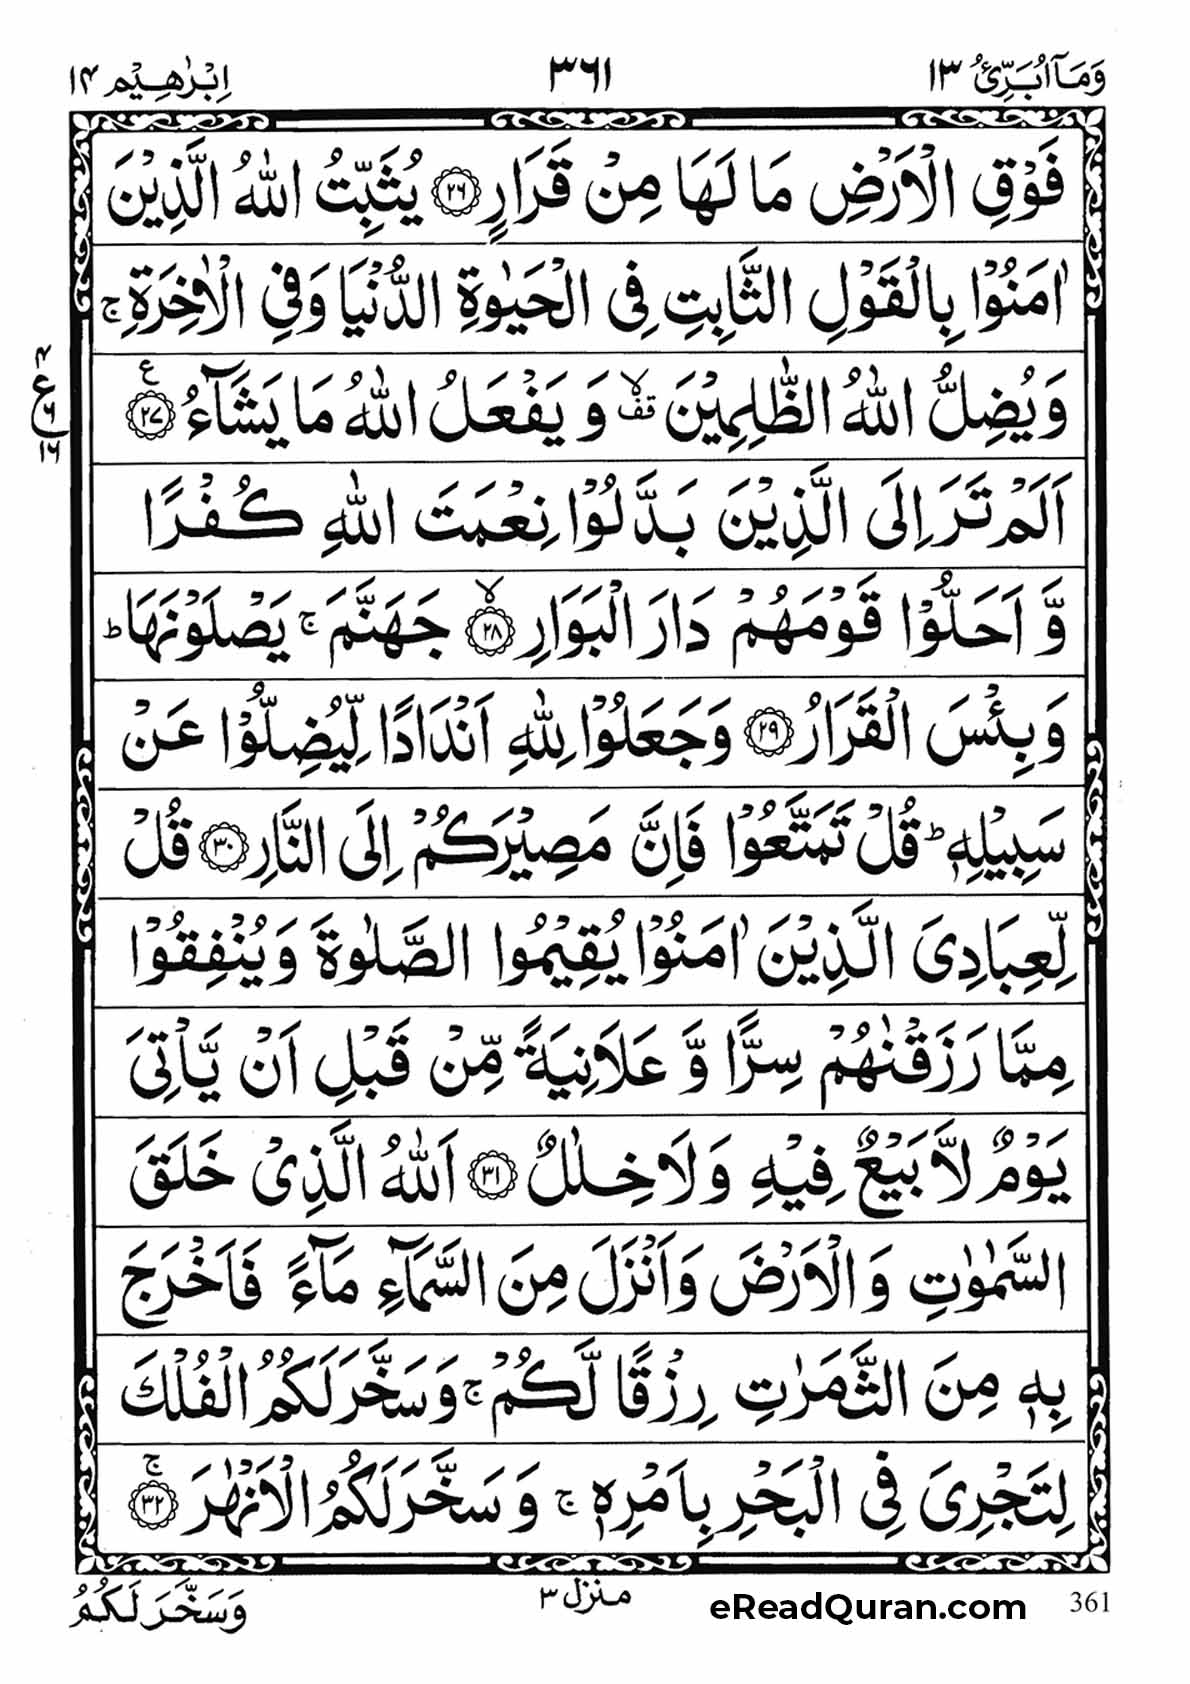 وَمَاۤ اُبَرِّئُ ١٣
٣٦١
اِبْرٰهِيْم ١٤
فَوْقِ الْاَرْضِ مَا لَهَا مِنْ قَرَارٍ ﴿٢٦﴾ يُثَبِّتُ اللّٰهُ الَّذِيْنَ
اٰمَنُوْا بِالْقَوْلِ الثَّابِتِ فِى الْحَيٰوةِ الدُّنْيَا وَفِى الْاٰخِرَةِ ۚ
وَيُضِلُّ اللّٰهُ الظّٰلِمِيْنَ ۙ قف وَ يَفْعَلُ اللّٰهُ مَا يَشَآءُ ﴿٢٧﴾ ع
٤
ع
٦
١٦
اَلَمْ تَرَ اِلَى الَّذِيْنَ بَدَّلُوْا نِعْمَتَ اللّٰهِ كُفْرًا
وَّ اَحَلُّوْا قَوْمَهُمْ دَارَ الْبَوَارِ ﴿٢٨﴾ ۙ جَهَنَّمَ ۚ يَصْلَوْنَهَا ؕ
وَبِئْسَ الْقَرَارُ ﴿٢٩﴾ وَجَعَلُوْا لِلّٰهِ اَنْدَادًا لِّيُضِلُّوْا عَنْ
سَبِيْلِهٖ ؕ قُلْ تَمَتَّعُوْا فَاِنَّ مَصِيْرَكُمْ اِلَى النَّارِ ﴿٣٠﴾ قُلْ
لِّعِبَادِىَ الَّذِيْنَ اٰمَنُوْا يُقِيْمُوا الصَّلٰوةَ وَيُنْفِقُوْا
مِمَّا رَزَقْنٰهُمْ سِرًّا وَّ عَلَانِيَةً مِّنْ قَبْلِ اَنْ يَّاْتِىَ
يَوْمٌ لَّا بَيْعٌ فِيْهِ وَلَا خِلٰلٌ ﴿٣١﴾ اَللّٰهُ الَّذِىْ خَلَقَ
السَّمٰوٰتِ وَالْاَرْضَ وَاَنْزَلَ مِنَ السَّمَآءِ مَآءً فَاَخْرَجَ
بِهٖ مِنَ الثَّمَرٰتِ رِزْقًا لَّكُمْ ۚ وَسَخَّرَ لَكُمُ الْفُلْكَ
لِتَجْرِىَ فِى الْبَحْرِ بِاَمْرِهٖ ۚ وَسَخَّرَ لَكُمُ الْاَنْهٰرَ ﴿٣٢﴾ ۚ
وَسَخَّرَ لَكُمُ
منزل ٣
eReadQuran.com
361